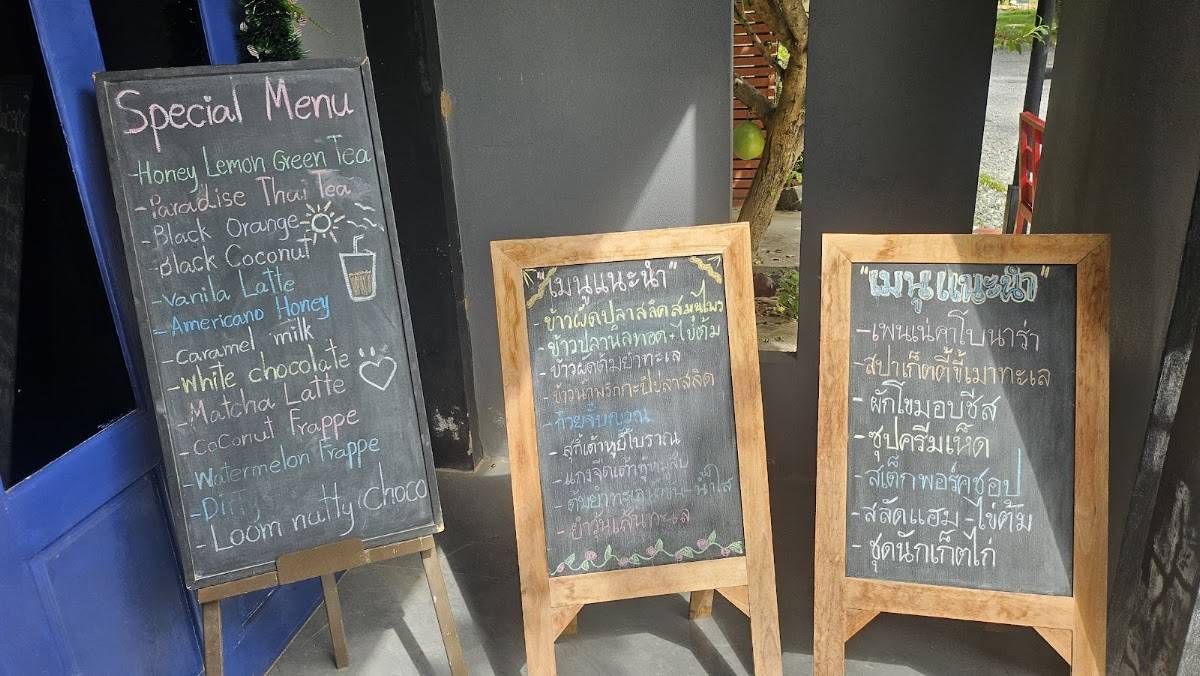 Special Menu
-Honey Lemon Green Tea
-Paradise Thai Tea
-Black Orange
-Black Coconut
-Vanila Latte
-Americano Honey
-Caramel milk
-White chocolate
-Matcha Latte
-Coconut Frappe
-Watermelon Frappe
-Dirty
-Loom nutty Choco
"เมนูแนะนำ"
-ข้าวผัดปลาสลิดสมุนไพร
-ข้าวปลานิลทอด+ไข่ต้ม
-ข้าวผัดต้มยำทะเล
-ข้าวน้ำพริกกะปิปลาสลิด
-สุกี้เต้าหู้ยี้โบราณ
-แกงจืดเต้าหู้หมูสับ
-ต้มยำทะเล -น้ำใส
-ยำวุ้นเส้นทะเล
"เมนูแนะนำ"
-เพนเน่คาโบนาร่า
-สปาเก็ตตี้ขี้เมาทะเล
-ผักโขมอบชีส
-ซุปครีมเห็ด
-สเต็กพอร์คชอป
-สลัดแฮม-ไข่ต้ม
-ชุดนักเก็ตไก่